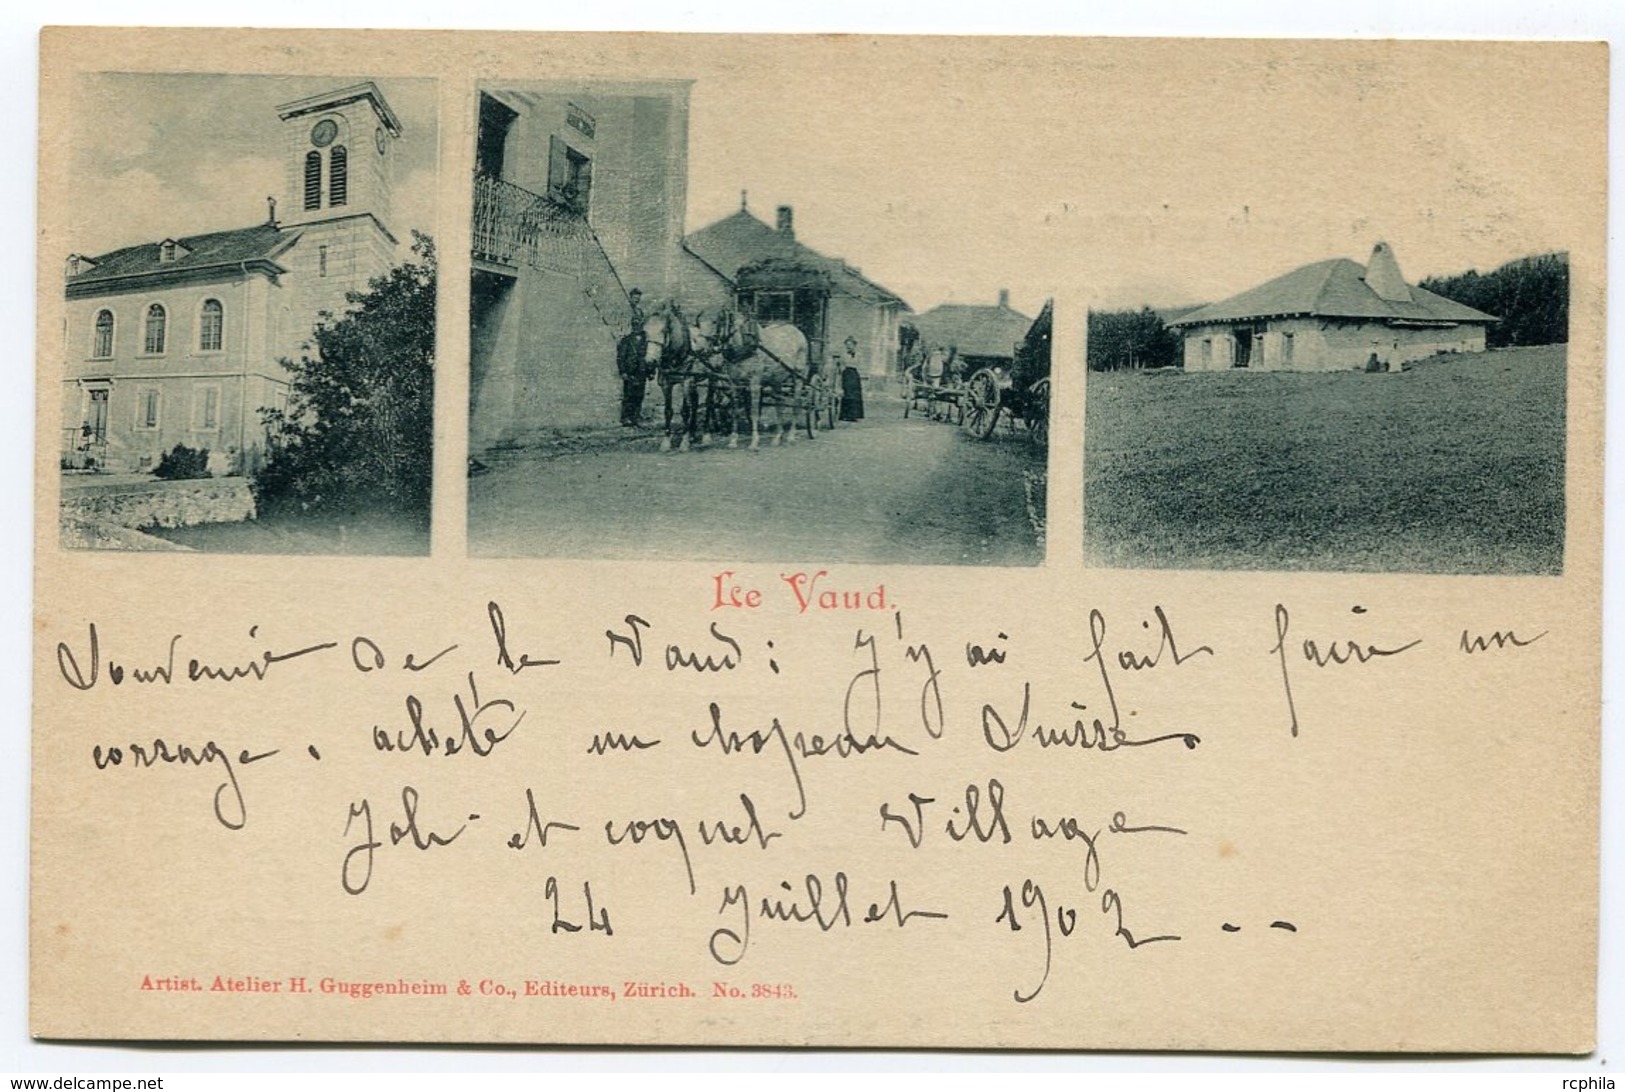 Le Vaud.
Souvenir de le Vaud : J'y ai fait faire un
corsage. acheté un chapeau Suisse.
Joli et coquet Village
24 Juillet 1902 --
Artist. Atelier H. Guggenheim & Co., Editeurs, Zürich. No. 3843.
www.delcampe.net
rcphila